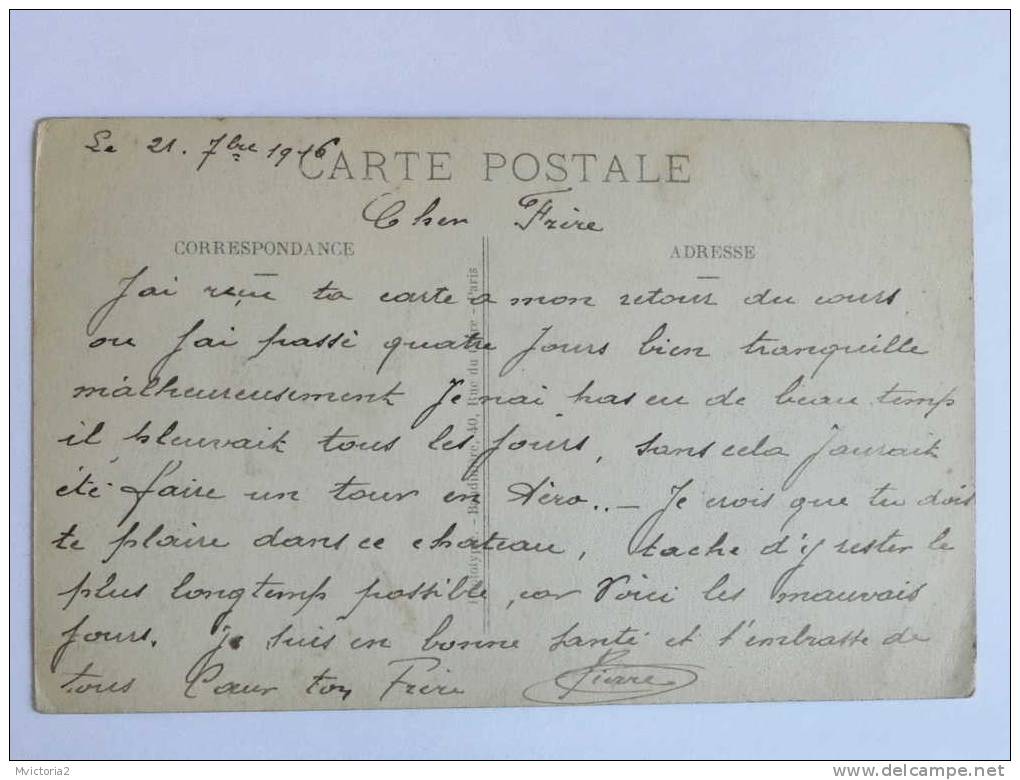 Le 21. 7bre 1916
CARTE POSTALE
Cher Frère
CORRESPONDANCE
ADRESSE
J'ai reçu ta carte a mon retour du cours
ou J'ai passé quatre Jours bien tranquille
malheureusement Je n'ai pas eu de beau temp
il pleuvait tous les Jours, sans cela J'aurait
été faire un tour en Aéro..— Je crois que tu dois
te plaire dans ce chateau, tache d'y rester le
plus longtemp possible, car Voici les mauvais
Jours. Je suis en bonne santé et t'embrasse de
tous Cœur ton Frère Pierre
40, Rue du - Paris
Mvictoria2
www.delcampe.net